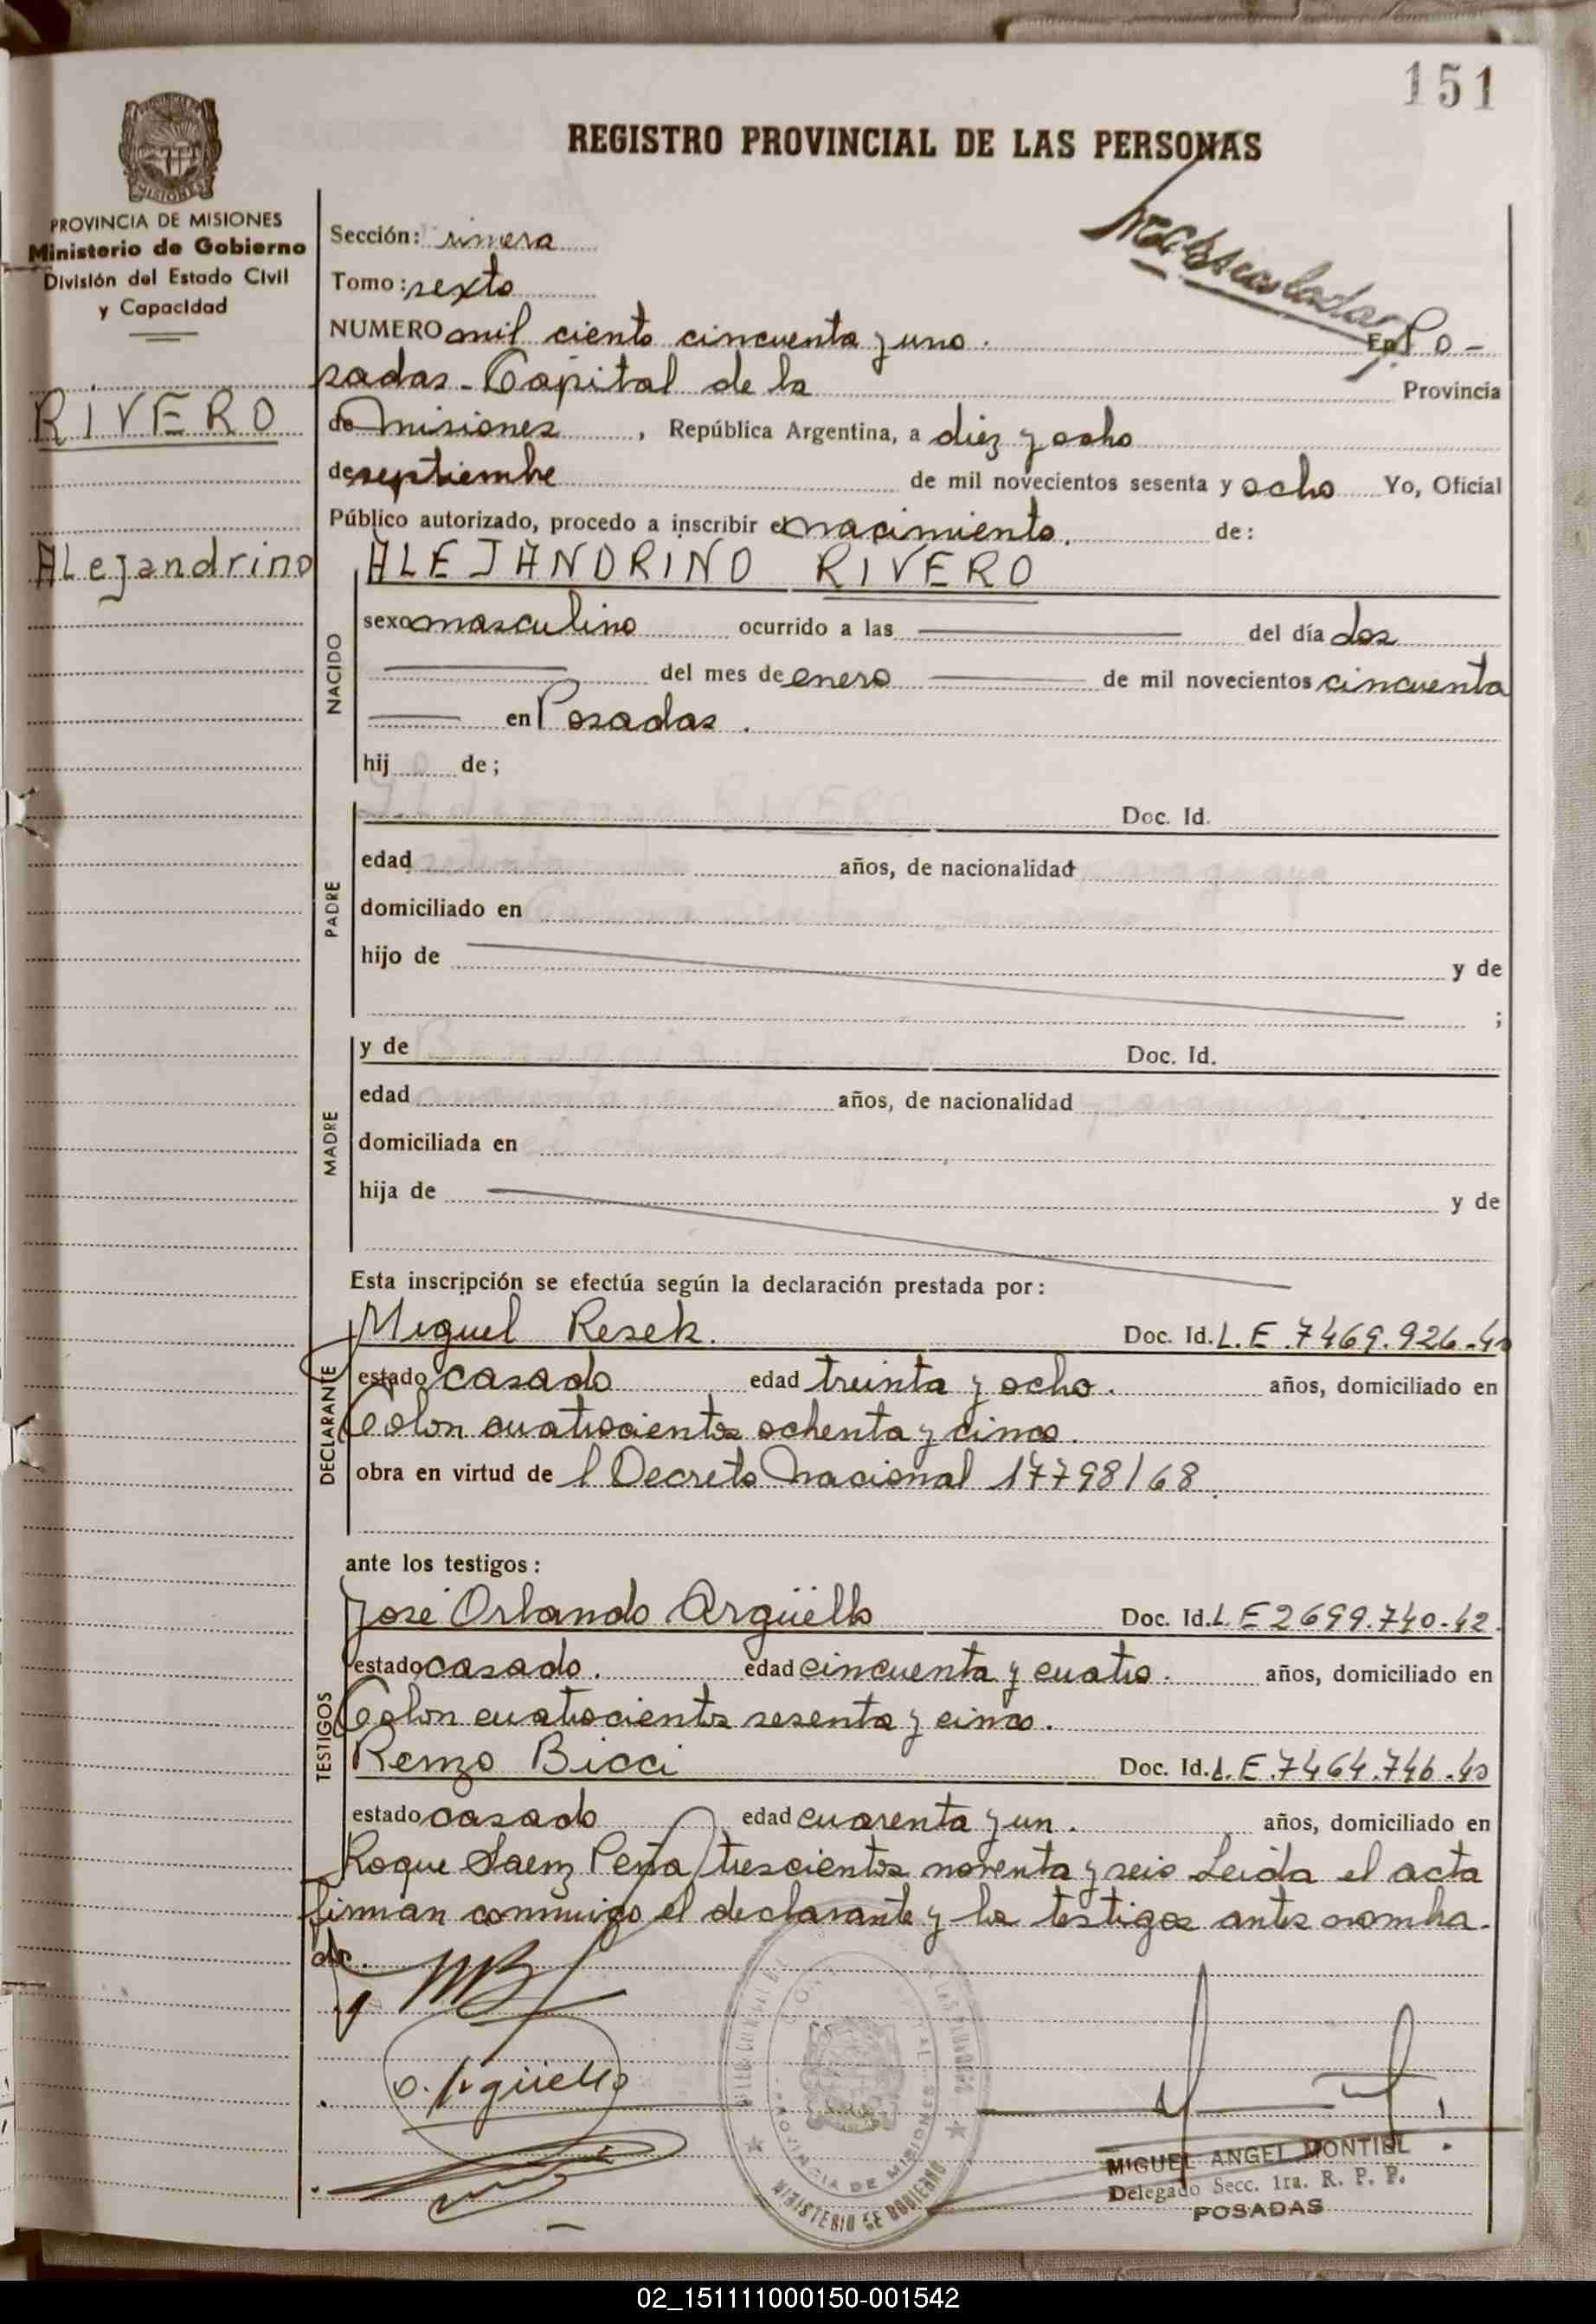 151
REGISTRO PROVINCIAL DE LAS PERSONAS
PROVINCIA DE MISIONES
Ministerio de Gobierno
División del Estado Civil
y Capacidad
RIVERO
Alejandrino
Sección: rimera
Tomo: sexto
NUMERO mil ciento cincuenta y uno. En Po-
sadas - Capital de la Provincia
de Misiones, República Argentina, a diez y ocho
de septiembre de mil novecientos sesenta y ocho Yo, Oficial
Público autorizado, procedo a inscribir el nacimiento. de:
ALEJANDRINO RIVERO
NACIDO
sexo masculino ocurrido a las del día dos
del mes de enero de mil novecientos cincuenta
en Posadas.
hij o de;
PADRE
RIVERO Doc. Id.
edad años, de nacionalidad
domiciliado en
hijo de y de
;
MADRE
y de Doc. Id.
edad años, de nacionalidad
domiciliada en
hija de y de
Esta inscripción se efectúa según la declaración prestada por:
DECLARANTE
Miguel Resek. Doc. Id. L.E. 7469.926-40
estado casado edad treinta y ocho. años, domiciliado en
Colon cuatrocientos ochenta y cinco.
obra en virtud de l Decreto Nacional 17798/68
ante los testigos:
TESTIGOS
José Orlando Argüello Doc. Id. L.E 2699.740-42.
estado casado. edad cincuenta y cuatro. años, domiciliado en
Colon cuatrocientos sesenta y cinco.
Renzo Bicci Doc. Id. L.E. 7464.746-40
estado casado edad cuarenta y un. años, domiciliado en
Roque Saenz Peña trescientos noventa y seis Leida el acta
firman conmigo el declarante y los testigos antes nombra-
dos.
O. Argüello
PROVINCIA DE MISIONES
MINISTERIO DE GOBIERNO
MIGUEL ANGEL MONTIEL
Delegado Secc. 1ra. R. P. P.
POSADAS
02_151111000150-001542